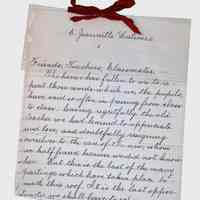 A Farewell
Friends, Teachers, Classmates:
It has fallen to me to re-
peat those words which we, the pupils,
have said so often in passing from class
to class, leaving regretfully the old
Teacher we had learned to appreciate
and love, and doubtfully resigning
ourselves to the care of
we half feared he would not know
her. But this is the last of the many
partings which have taken place be-
neath this roof. It is the last oppor-